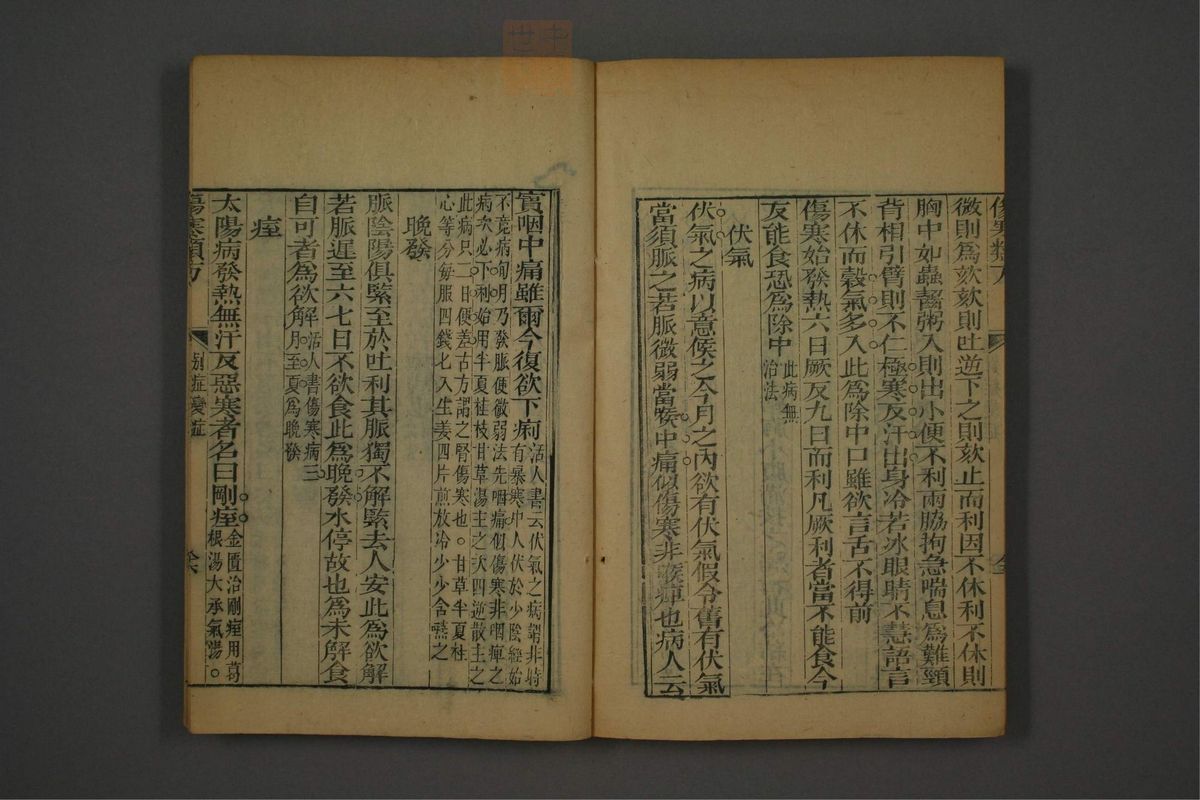 傷寒類方
微則為欬欬則吐逆下之則欬止而利因不休利不休則
胸中如蟲齧粥入則出小便不利兩脇拘急喘息為難頸
背相引臂則不仁極寒反汗出身冷若冰眼睛不慧語言
不休而穀氣多入此為除中口雖欲言舌不得前
傷寒始發熱六日厥反九日而利凡厥利者當不能食今
反能食恐為除中此病無
治法
伏氣
伏氣之病以意候之今月之內欲有伏氣假令舊有伏氣
當須脈之若脈微弱當喉中痛似傷寒非喉痺也病人云
實咽中痛雖爾今復欲下痢活人書云伏氣之病謂非時
有暴寒中人伏於少陰經始
不覺病旬月乃發脈便微弱法先咽痛似傷寒非咽痺之
病次必下利始用半夏桂枝甘草湯主之次四逆散主之
此病只二日便差古方謂之腎傷寒也。甘草半夏桂
心等分每服四錢匕入生姜四片煎放冷少少含嚥之
晚發
脈陰陽俱緊至於吐利其脈獨不解緊去人安此為欲解
若脈遲至六七日不欲食此為晚發水停故也為未解食
自可者為欲解活人書傷寒病三
月至夏為晚發
痙
太陽病發熱無汗反惡寒者名曰剛痙金匱治剛痙用葛
根湯大承氣湯。
傷寒類方
別症變症